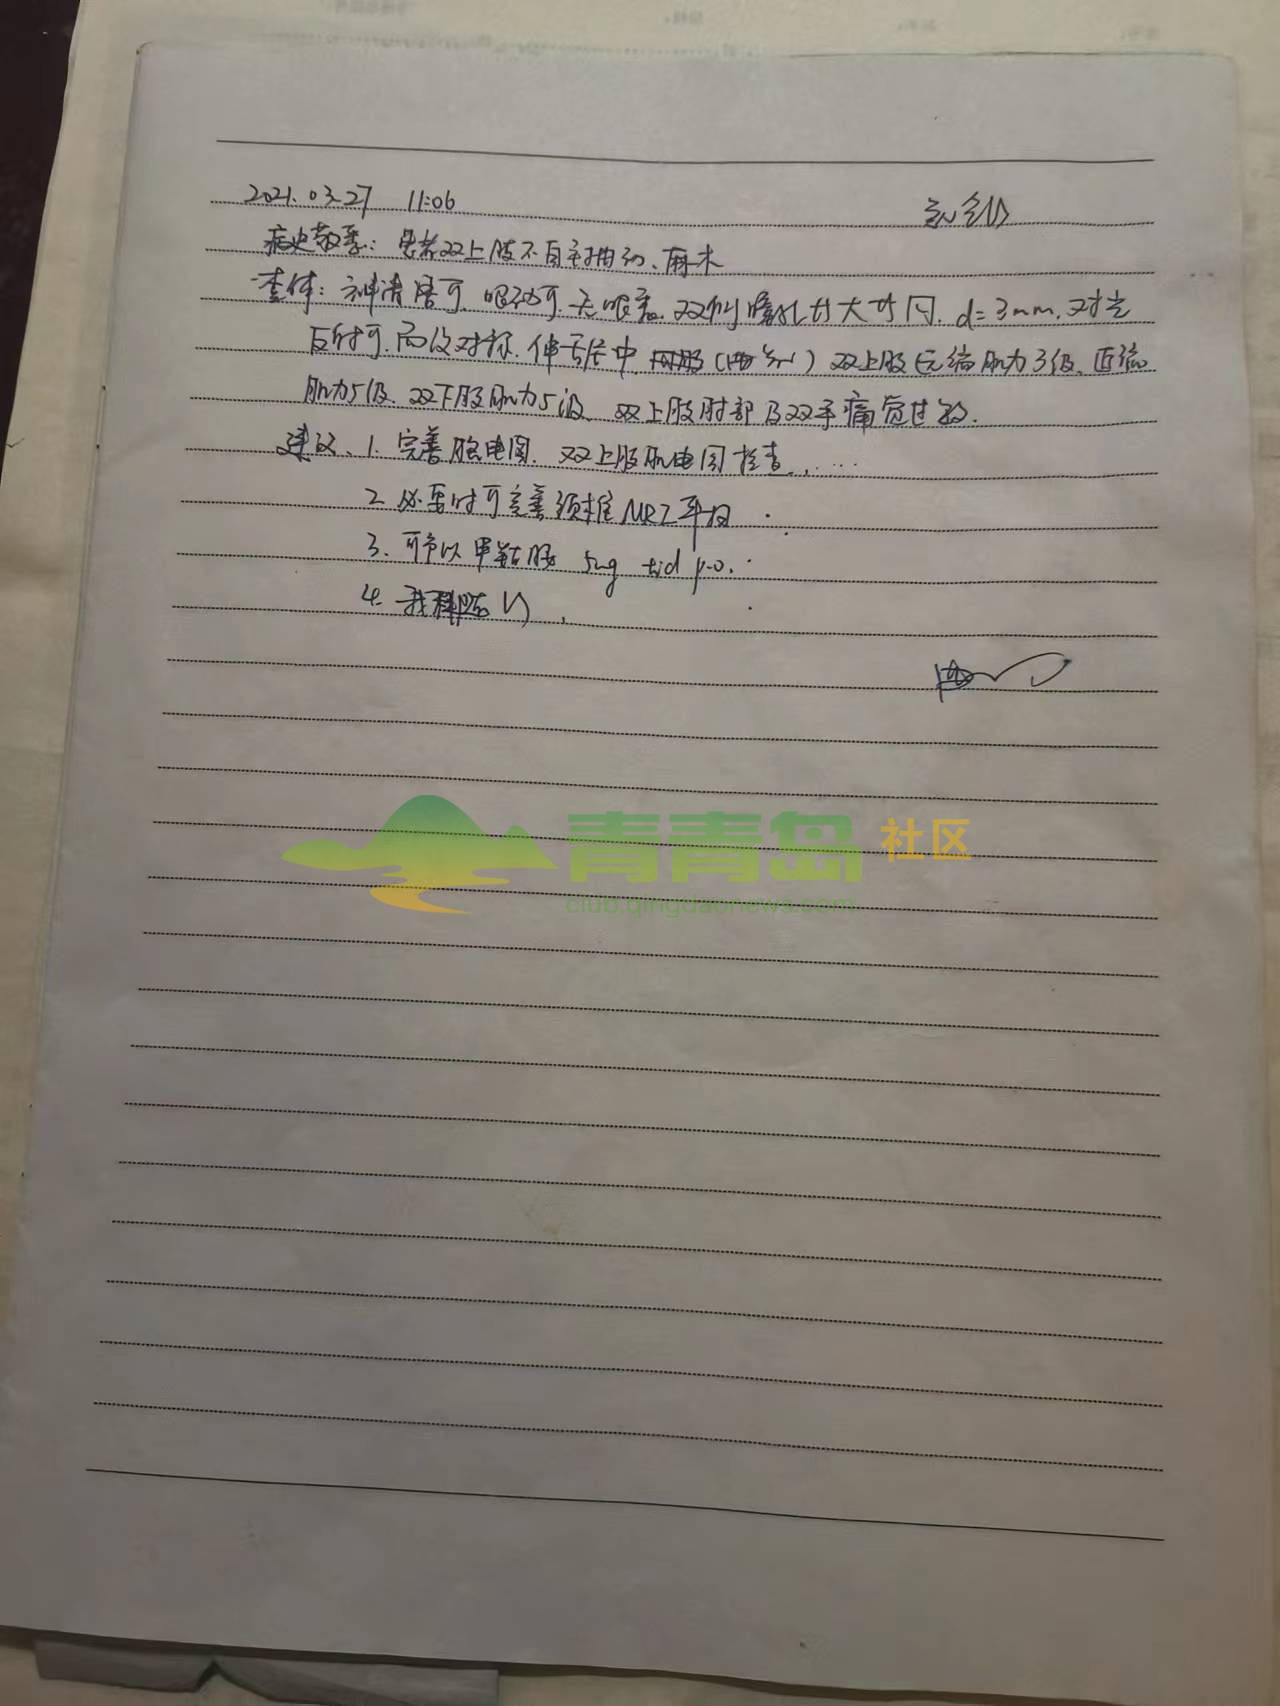 2021.03.27 11:06
病史敬悉：患者双上肢不自主抽动、麻木
查体：神清语可，眼动可，无眼震，双侧瞳孔等大等圆，d=3mm，对光
反射可，面纹对称，伸舌居中，双上肢远端肌力3级、近端
肌力5级，双下肢肌力5级，双上肢肘部及双手痛觉过敏。
建议、1. 完善脑电图、双上肢肌电图检查
2 必要时可完善颈椎MRI平扫
3. 可予以甲钴胺 5mg tid p.o.
4. 我科随
青青岛 社区
club.qingdaonews.com